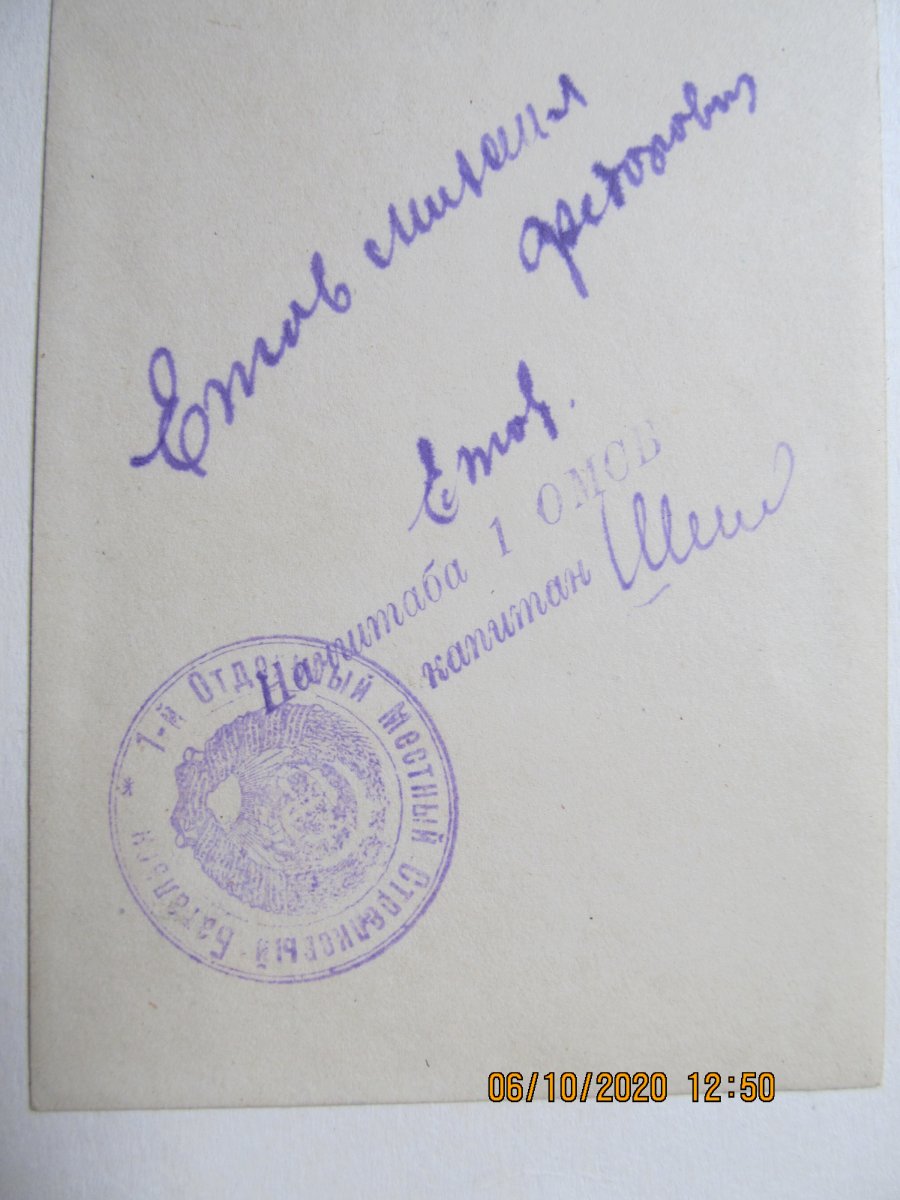 Етов Михаил
Федорович
Етов.
Начштаба 1 ОМСБ
капитан
* 1-й Отдельный Местный Стрелковый Батальон
06/10/2020 12:50